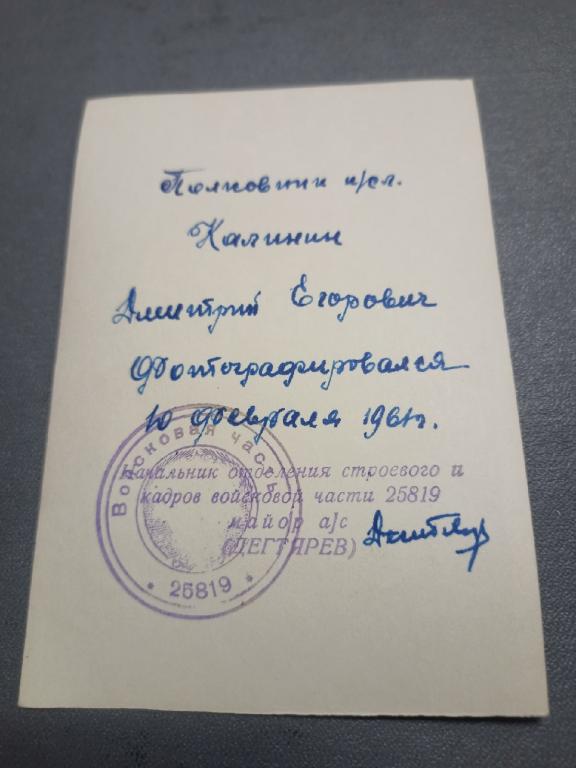 Полковник и/сл.
Калинин
Дмитрий Егорович
Фотографировался
10 февраля 1961г.
Начальник отделения строевого и
кадров войсковой части 25819
майор а/с
(ДЕГТЯРЕВ)
Войсковая часть
* 25819 *